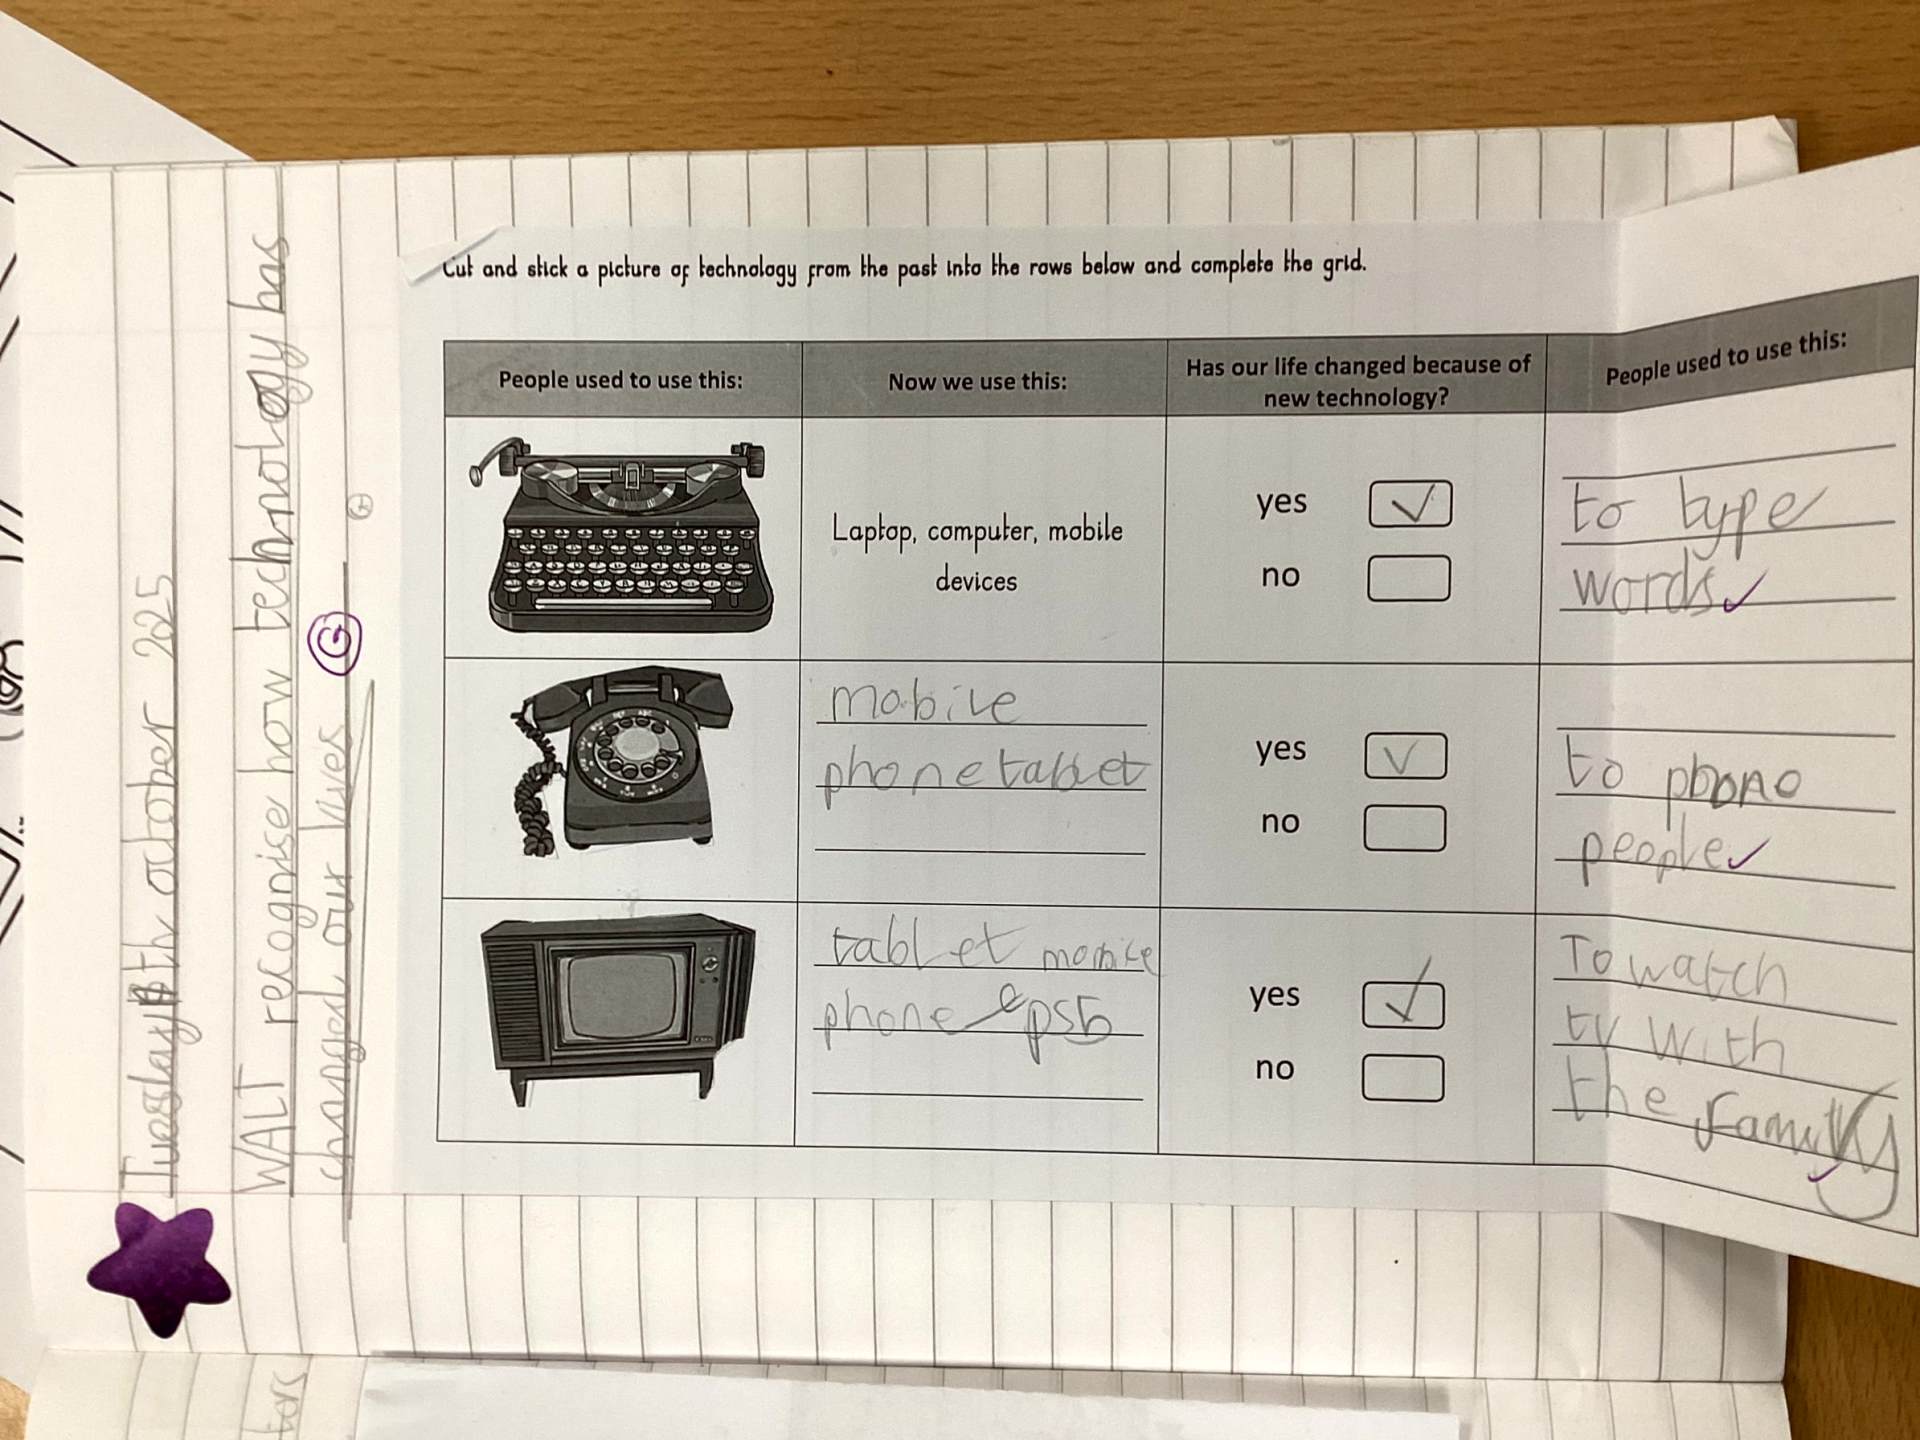 Tuesday th october 2025
WALT recognise how technology has
changed our lives G
G
Cut and stick a picture of technology from the past into the rows below and complete the grid.
People used to use this:
Now we use this:
Has our life changed because of
new technology?
People used to use this:
Laptop, computer, mobile
devices
yes
no
to type
words
mobile
phone tablet
yes
no
to phone
people
tablet mobile
phone ps5
yes
no
To watch
tv with
the family